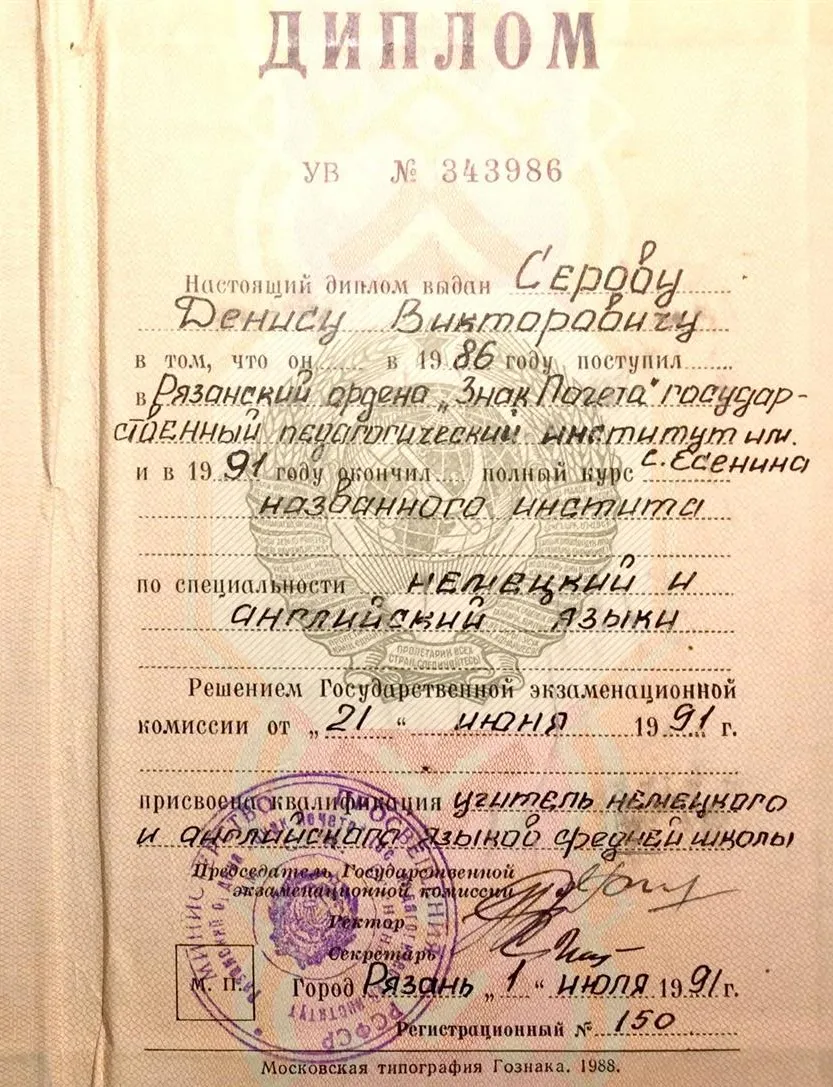 ДИПЛОМ
УВ № 343986
Настоящий диплом выдан Серову
Денису Викторовичу
в том, что он в 1986 году поступил
в Рязанский ордена „Знак Почета" государ-
ственный педагогический институт им.
с. Есенина
и в 1991 году окончил полный курс
названного инстита
по специальности немецкий и
английский языки
ПРОЛЕТАРИИ ВСЕХ
СТРАН, СОЕДИНЯЙТЕСЬ!
Решением Государственной экзаменационной
комиссии от „21“ июня 1991 г.
присвоена квалификация учитель немецкого
и английского языков средней школы
Председатель Государственной
экзаменационной комиссии
Ректор
Секретарь
М. П.
Город Рязань „1“ июля 1991 г.
Регистрационный № 150
МИНИСТЕРСТВО ПРОСВЕЩЕНИЯ РСФСР
Московская типография Гознака. 1988.